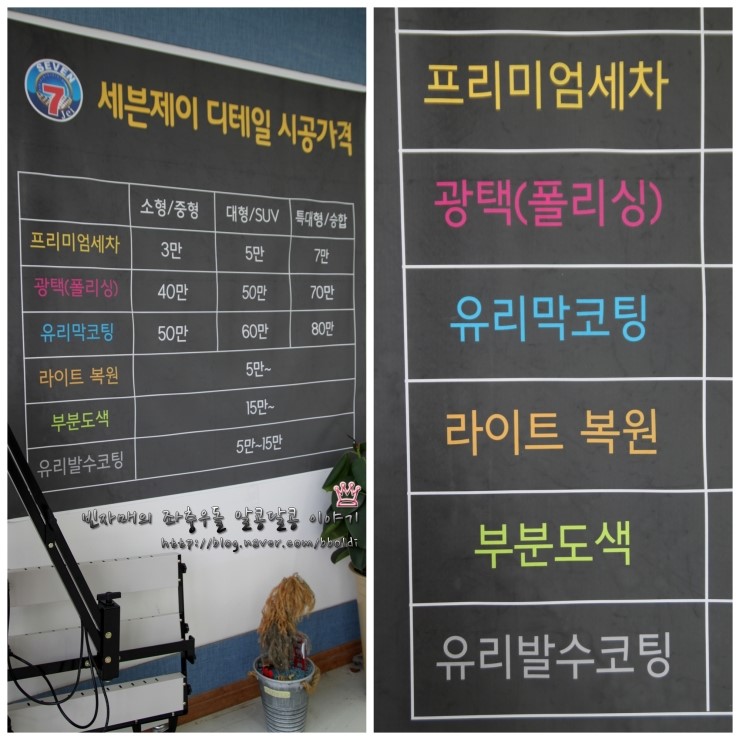 SEVEN
7
세븐제이 디테일 시공가격
소형/중형 대형/SUV 특대형/승합
프리미엄세차 3만 5만 7만
광택(폴리싱) 40만 50만 70만
유리막코팅 50만 60만 80만
라이트 복원 5만~
부분도색 15만~
유리발수코팅 5만~15만
빈자매의 좌충우돌 알콩달콩 이야기
http://blog.naver.com/bboldi
프리미엄세차
광택(폴리싱)
유리막코팅
라이트 복원
부분도색
유리발수코팅